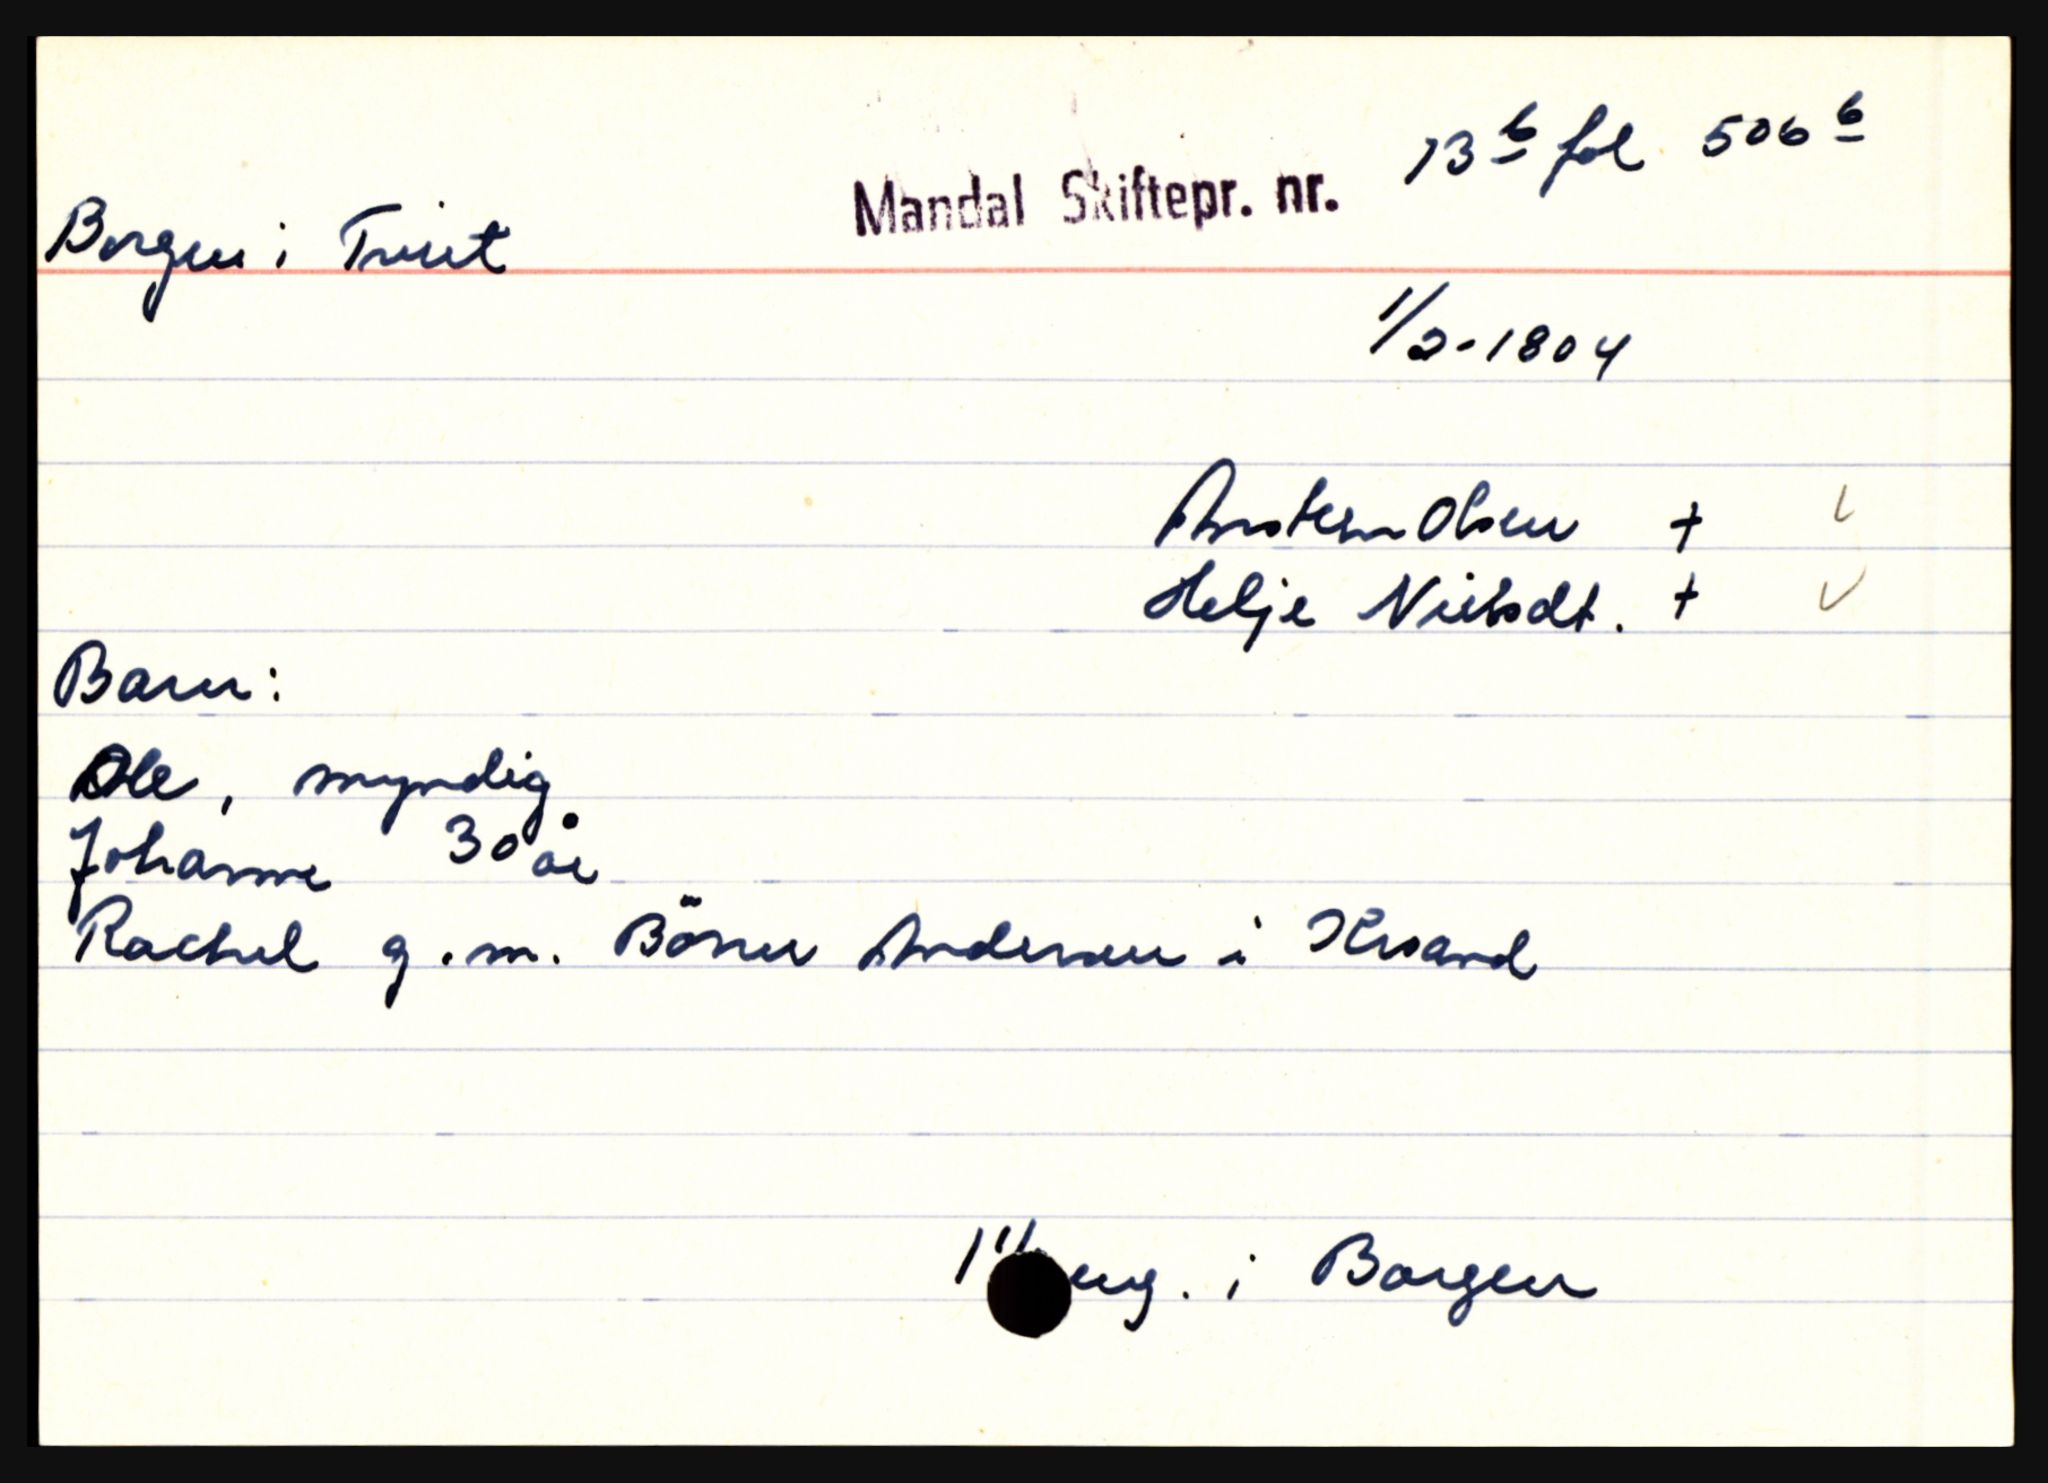 Mandal Skiftepr. nr. 13 b fol 506 b
Borgen i Tveit
1/2-1804
Anstein Olsen +
Helje Nielsdt. +
Barn:
Ole, myndig
Johanne 30 år
Rachel g.m. Börre Andersen i Krsand
eng. i Borgen